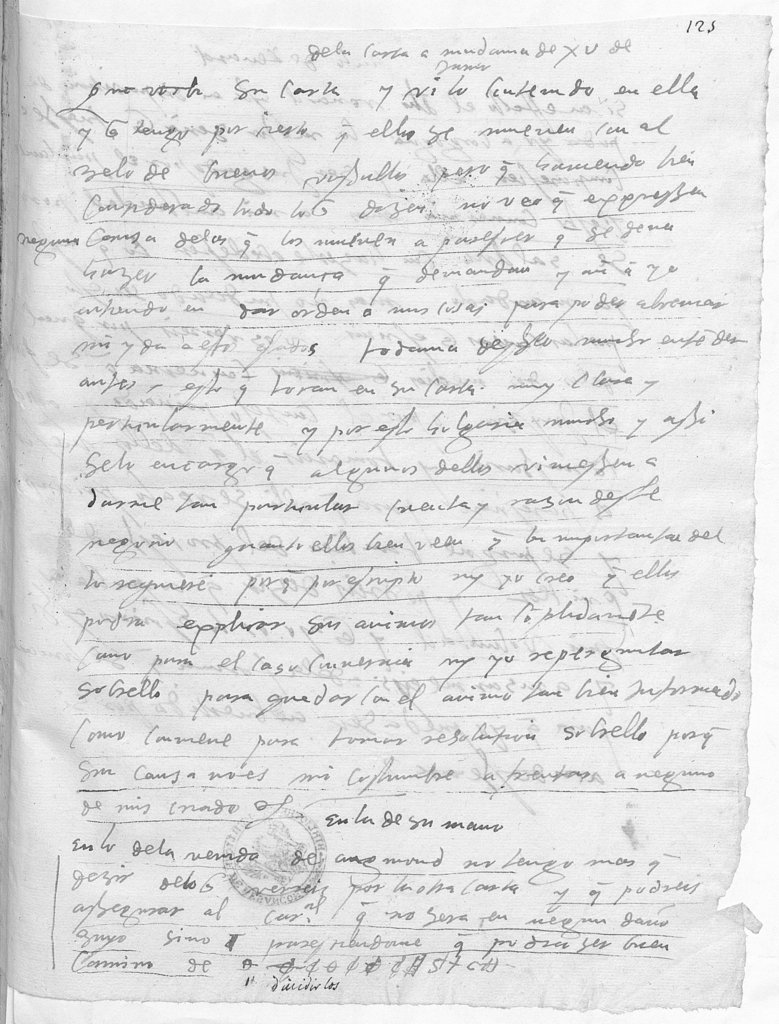 125
de la Carta a madama de XV de
Junio
su Carta y vi lo Contenido en ella
y q tengo por cierto q ellos se mueven con el
zelo de buenos vasallos pero q haviendo bien
Considerado todo lo q dizen no veo q expressen
ninguna Causa de las q los mueven a q se deva
hazer la mudança q demandan y aun q yo
entiendo en dar orden a mis cosas para poder
mi yda a essos estados todavia
antes esto q tocan en su Carta muy Clara y
particularmente y por esto holgaria mucho y assi
se lo encargo q algunos dellos viniessen a
darme tan particular cuenta y razon deste
negocio quanto ellos bien veen q la importancia del
lo requiere porq por escripto ny yo creo q ellos
podra explicar sus animos tan cõplidamẽte
Como para el Caso Convernia ny yo repreguntar
sobrello para quedar con el animo tan bien informado
Como Conviene para tomar resolucion sobrello porq
sin Causa no es mi Costumbre a ninguno
de mis criados
En la de su mano
En lo de la venida de no tengo mas q
dezir de lo q vereis por la otra Carta y q podreis
assegurar al Car.al q no sera en ningun daño
suyo sino q podra ser buen
Camino de
dividirlos